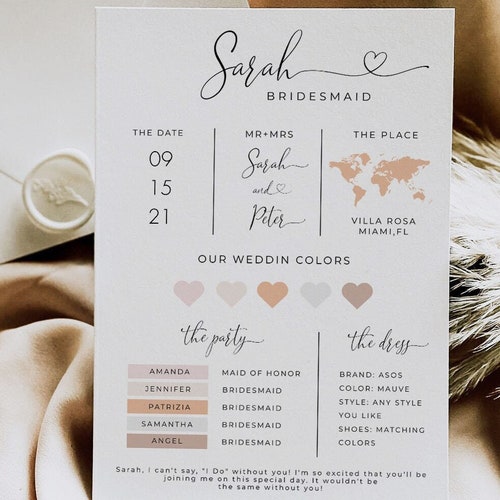 Sarah
BRIDESMAID
THE DATE
09
15
21
MR+MRS
Sarah
and
Peter
THE PLACE
VILLA ROSA
MIAMI,FL
OUR WEDDIN COLORS
the party
AMANDA MAID OF HONOR
JENNIFER BRIDESMAID
PATRIZIA BRIDESMAID
SAMANTHA BRIDESMAID
ANGEL BRIDESMAID
the dress
BRAND: ASOS
COLOR: MAUVE
STYLE: ANY STYLE
YOU LIKE
SHOES: MATCHING
COLORS
Sarah, I can't say, "I Do" without you! I'm so excited that you'll be
joining me on this special day. It wouldn't be
the same without you!